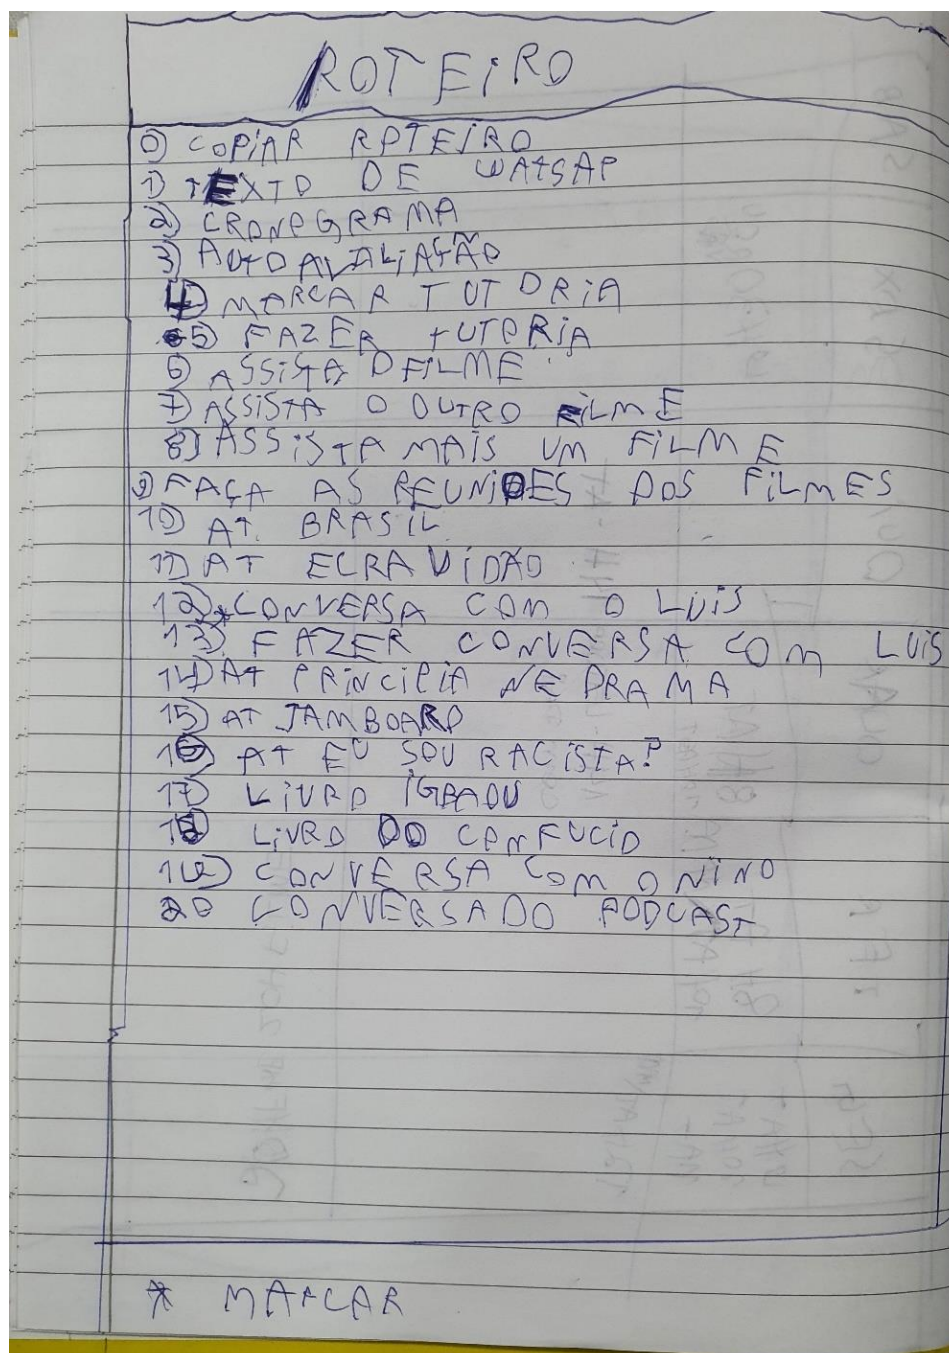 ROTEIRO
0) COPIAR ROTEIRO
1) TEXTO DE WATSAP
2) CRONOGRAMA
3) AUTO AVALIAÇÃO
4) MARCAR TUTORIA
5) FAZER TUTORIA
6) ASSISTA O FILME
7) ASSISTA O OUTRO FILME
8) ASSISTA MAIS UM FILME
9) FAÇA AS REUNIÕES DOS FILMES
10) AT. BRASIL
11) AT ECRAVIDÃO
12) *CONVERSA COM O LUIS
13) FAZER CONVERSA COM LUIS
14) AT PRINCIPIA NE DRAMA
15) AT JAMBOARD
16) AT EU SOU RACISTA?
17) LIVRO IGBADU
18 LIVRO DO CONFUCIO
19) CONVERSA COM O NINO
20 CONVERSA DO PODCAST
* MARCAR